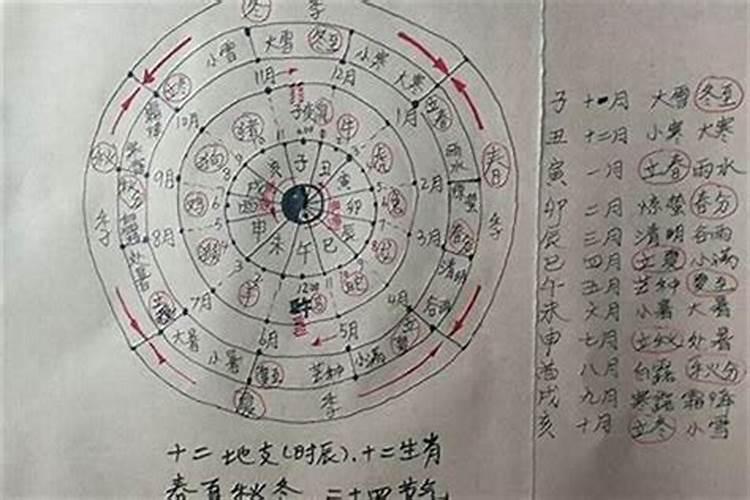 冬 季
小雪 大雪 冬至 小寒 大寒
立冬 11月 12月 立春
10月 1月
子 牛
猪 鼠 虎
狗 亥 子 丑 雨水
秋 9月 戌 寅 2月 惊蛰 春
秋分 鸡 酉 卯 兔
季 8月 猴 申 辰 龙 3月 春分 季
处暑 未 午 巳 清明
羊 蛇 谷雨
立秋 7月 12:00 4月
大暑 6月 5月 立夏
小暑 夏至 芒种 小满
夏 季
子 十一月 大雪 冬至
丑 十二月 小寒 大寒
寅 一月 立春 雨水
卯 二月 惊蛰 春分
辰 三月 清明 谷雨
巳 四月 立夏 小满
午 五月 芒种 夏至
未 六月 小暑 大暑
申 七月 立秋 处暑
酉 八月 白露 秋分
戌 九月 寒露 霜降
亥 十月 立冬 小雪
十二地支(时辰).十二生肖
春夏秋冬 二十四节气